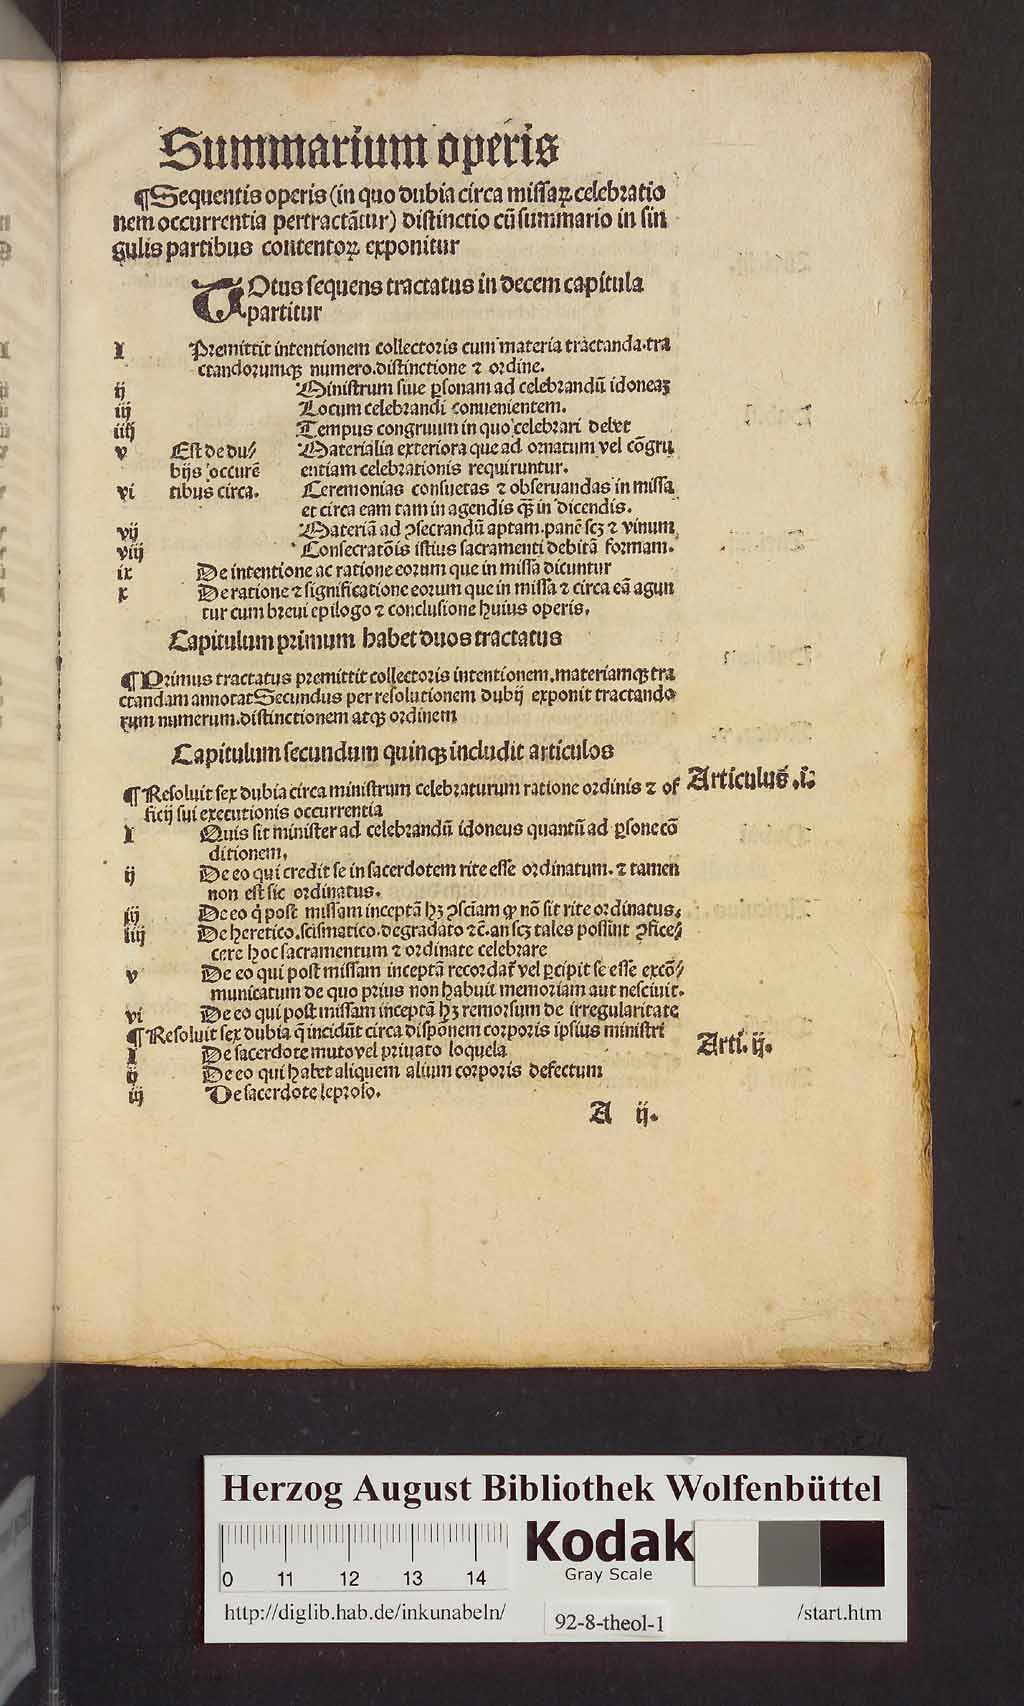 Summarium operis
¶Sequentis operis (in quo dubia circa missaꝝ celebratio
nem occurrentia pertractãtur) distinctio cũ summario in sin
gulis partibus contentoꝝ exponitur
TOtus sequens tractatus in decem capitula
partitur
I Premittit intentionem collectoris cum materia tractanda. tra
ctandorumqꝫ numero. distinctione ⁊ ordine.
ij Ministrum siue ꝑsonam ad celebrandũ idoneaꝫ
iij Locum celebrandi conuenientem.
iiij Tempus congruum in quo celebrari debet
v Est de du⸗ Materialia exteriora que ad ornatum vel cõgru
bijs occurẽ entiam celebrationis requiruntur.
vi tibus circa. Ceremonias consuetas ⁊ obseruandas in missa
et circa eam tam in agendis qꝫ̃ in dicendis.
vij Materiã ad ꝯsecrandũ aptam. panẽ scꝫ ⁊ vinum
viij Consecratõis istius sacramenti debitã formam.
ix De intentione ac ratione eorum que in missa dicuntur
x De ratione ⁊ significatione eorum que in missa ⁊ circa eã agun
tur cum breui epilogo ⁊ conclusione huius operis.
Capitulum primum habet duos tractatus
¶Primus tractatus premittit collectoris intentionem. materiamqꝫ tra
ctandam annotat Secundus per resolutionem dubij exponit tractando
rum numerum. distinctionem atqꝫ ordinem
Capitulum secundum quinqꝫ includit articulos
¶Resoluit sex dubia circa ministrum celebraturum ratione ordinis ⁊ of Articulus .i.
ficij sui executionis occurrentia
I Quis sit minister ad celebrandũ idoneus quantũ ad ꝑsone cõ
ditionem.
ij De eo qui credit se in sacerdotem rite esse ordinatum. ⁊ tamen
non est sic ordinatus.
iij De eo q̇ post missam inceptã hꝫ ꝯsciam ꝙ nõ sit rite ordinatus.
iiij De heretico. scismatico. degradato ⁊c̃. an scꝫ tales possint ꝯfice⸗
cere hoc sacramentum ⁊ ordinate celebrare
v De eo qui post missam inceptã recordat̃ vel ꝑcipit se esse excõ⸗
municatum de quo prius non habuit memoriam aut nesciuit.
vi De eo qui post missam inceptã hꝫ remorsum de irregularitate
¶Resoluit sex dubia q̃ incidũt circa dispõnem corporis ipsius ministri Arti. ij.
I De sacerdote muto vel priuato loquela
ij De eo qui habet aliquem alium corporis defectum
iij De sacerdote leproso.
A ij.
Herzog August Bibliothek Wolfenbüttel
0 11 12 13 14
Kodak
Gray Scale
http://diglib.hab.de/inkunabeln/ 92-8-theol-1 /start.htm